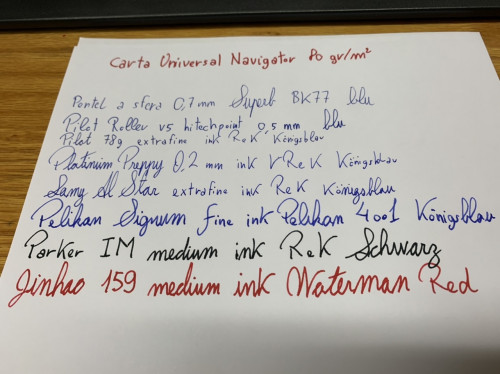 Carta Universal Navigator 80 gr/m²
Pentel a sfera 0,7 mm Superb BK77 blu
Pilot Roller V5 hitechpoint 0,5 mm blu
Pilot 78g extrafine ink R&K Königsblau
Platinum Preppy 0.2 mm ink R&K Königsblau
Lamy Al Star extrafine ink R&K Königsblau
Pelikan Signum fine ink Pelikan 4001 Königsblau
Parker IM medium ink R&K Schwarz
Jinhao 159 medium ink Waterman Red